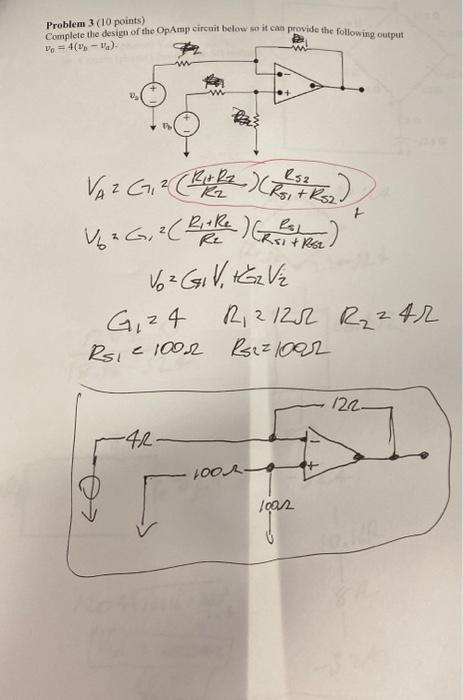 Problem 3 (10 points)
Complete the design of the OpAmp circuit below so it can provide the following output
v₀ = 4(v_b − v_a).
v_a
v_b
V_A = G₁ = ((R₁+R₂)/R₂)(R_S2/(R_S1 + R_S2))
+
V_b = G₁ = ((R₁+R₂)/R₂)(R_S1/(R_S1 + R_S2))
V₀ = G₁V₁ + G₂V₂
G₁ = 4 R₁ = 12Ω R₂ = 4Ω
R_S1 = 100Ω R_S2 = 100Ω
12Ω
4Ω
100Ω
100Ω